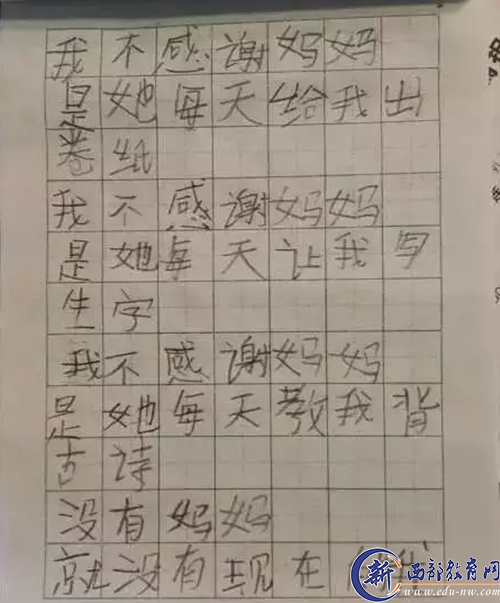 我不感谢妈妈
是她每天给我出
卷纸
我不感谢妈妈
是她每天让我写
生字
我不感谢妈妈
是她每天教我背
古诗
没有妈妈
就没有现在
新 西部教育网
www.edu-nw.com